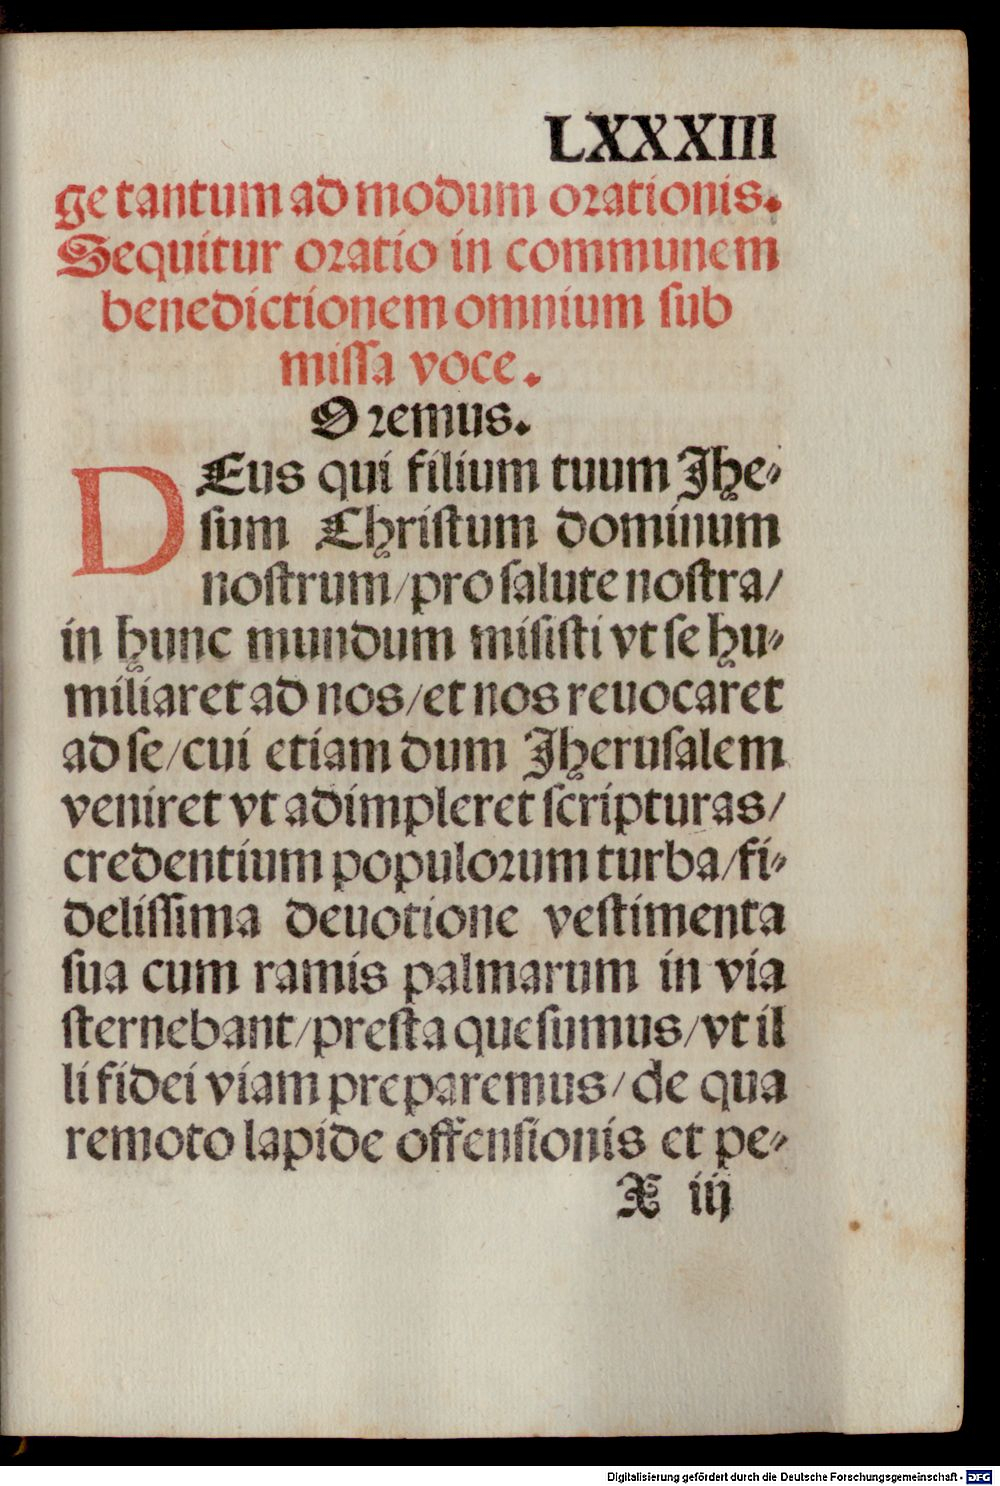 LXXXIII
ge tantum ad modum orationis.
Sequitur oratio in communem
benedictionem omnium sub
missa voce.
Oremus.
DEus qui filium tuum Jhe-
sum Christum dominum
nostrum/pro salute nostra/
in hunc mundum misisti vt se hu-
miliaret ad nos/et nos reuocaret
ad se/cui etiam dum Jherusalem
veniret vt adimpleret scripturas/
credentium populorum turba/fi-
delissima deuotione vestimenta
sua cum ramis palmarum in via
sternebant/presta quesumus/vt il
li fidei viam preparemus/de qua
remoto lapide offensionis et pe-
X iij
Digitalisierung gefördert durch die Deutsche Forschungsgemeinschaft - DFG